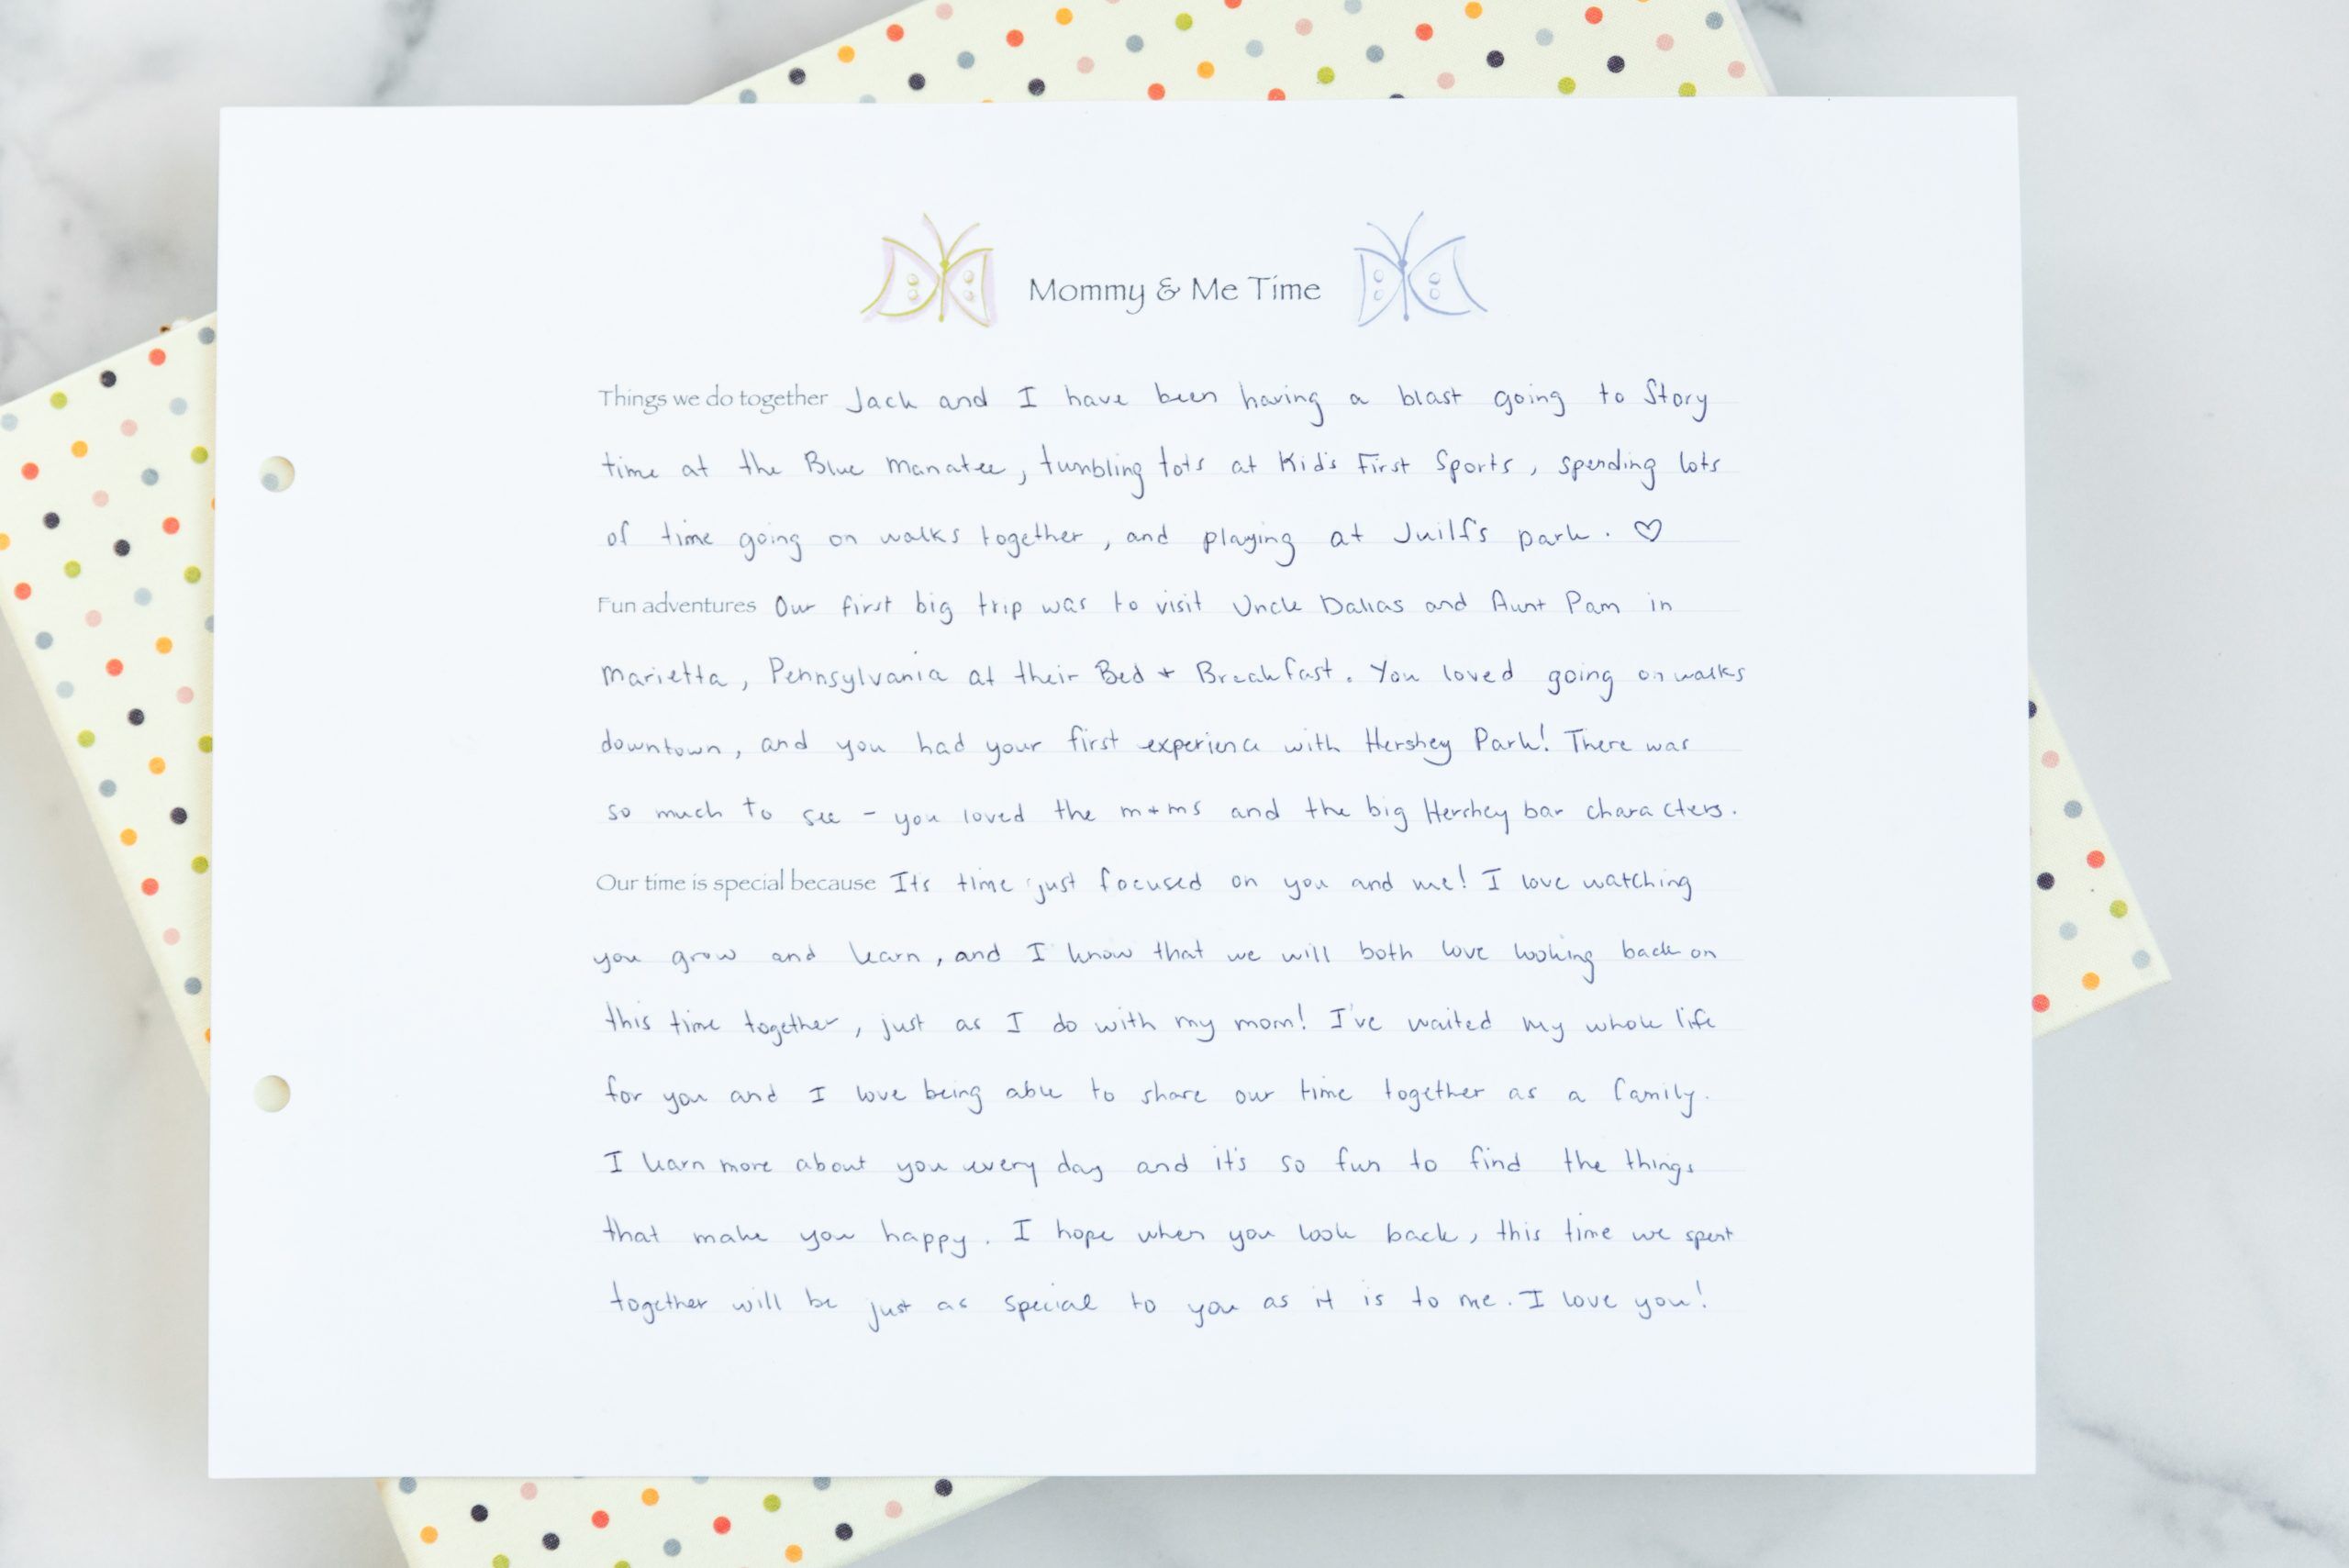 Mommy & Me Time
Things we do together Jack and I have been having a blast going to Story
time at the Blue manatee, tumbling tots at Kid's First Sports, spending lots
of time going on walks together, and playing at Juilf's park. ♡
Fun adventures Our first big trip was to visit Uncle Dallas and Aunt Pam in
Marietta, Pennsylvania at their Bed + Breakfast. You loved going on walks
downtown, and you had your first experience with Hershey Park! There was
so much to see - you loved the m+ms and the big Hershey bar characters.
Our time is special because It's time just focused on you and me! I love watching
you grow and learn, and I know that we will both love looking back on
this time together, just as I do with my mom! I've waited my whole life
for you and I love being able to share our time together as a family.
I learn more about you every day and it's so fun to find the things
that make you happy. I hope when you look back, this time we spent
together will be just as special to you as it is to me. I love you!